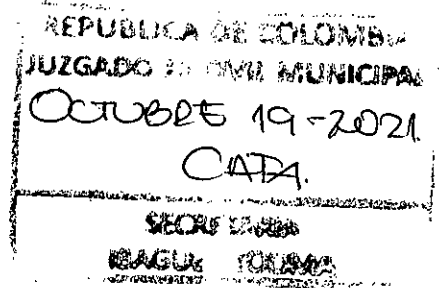 REPUBLICA DE COLOMBIA
JUZGADO CIVIL MUNICIPAL
OCTUBRE 19-2021.
CATA.
SECRETARIA
IBAGUE TOLIMA